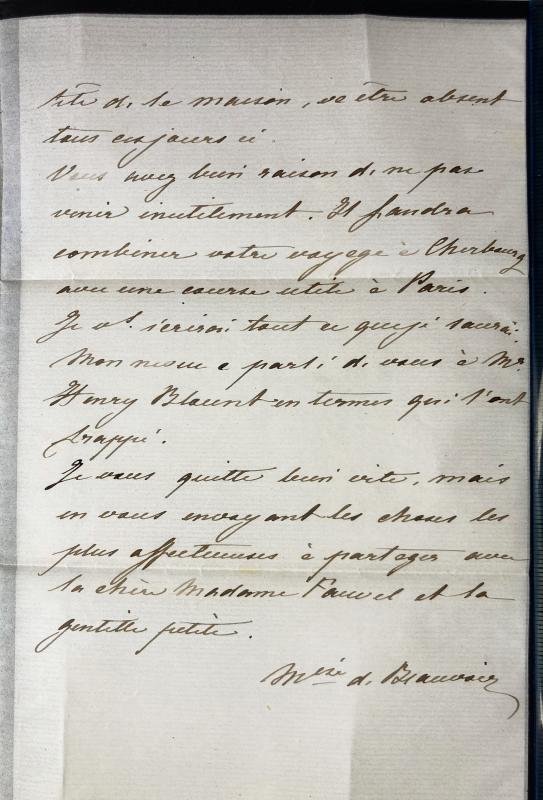 tête de la maison, va être absent
tous ces jours ci.
Vous avez bien raison de ne pas
venir inutilement. Il faudra
combiner votre voyage à Cherbourg
avec une course utile à Paris.
Je vs. écrirai tout ce que je saurai.
Mon neveu a parlé de vous à Mr.
Henry Blount en termes qui l'ont
frappé.
Je vous quitte bien vite, mais
en vous envoyant les choses les
plus affectueuses à partager avec
la chère Madame Fauvel et la
gentille petite.
Mise de Beauvoir